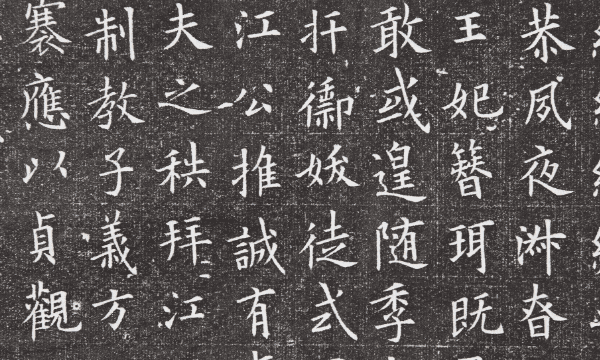 恭夙夜淑昚
王妃簪珥既
敢或遑随季
扞禦徒式
江公推誠有
夫之秩拜江
制教子義方
褰應以貞觀